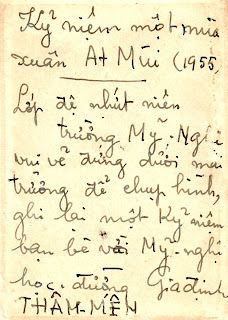 Kỷ niềm một mùa
xuân At Mùi (1955
Lớp đệ nhứt niên
trưởng Mỹ-Nghệ
vui vẻ đứng dưới mái
trưởng để chụp hình,
ghi lại một kỷ niêm
bạn bè với Mỹ-nghị
học-đường Gia định
THÂM-MẾN